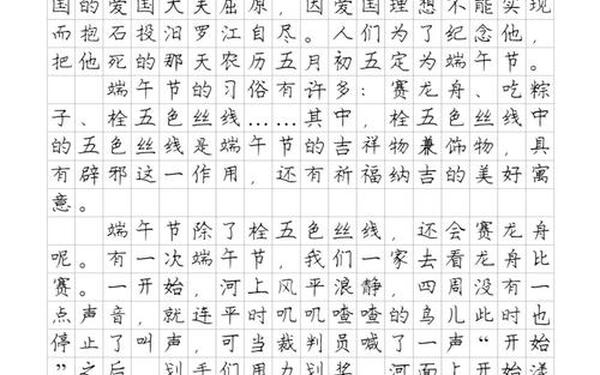 国的爱国大夫屈原，因爱国理想不能实现
而抱石投汨罗江自尽。人们为了纪念他，
把他死的那天农历五月初五定为端午节。
端午节的习俗有许多：赛龙舟、吃粽
子、栓五色丝线……其中，栓五色丝线中
的五色丝线是端午节的吉祥物兼饰物，具
有辟邪这一作用，还有祈福纳吉的美好寓
意。
端午节除了栓五色丝线，还会赛龙舟
呢。有一次端午节，我们一家去看龙舟比
赛。一开始，河上风平浪静，四周没有一
点声音，就连平时叽叽喳喳的鸟儿此时也
停止了叫声，可当裁判员喊了一声“开始
”之后，划手们用力划桨，河面上开始